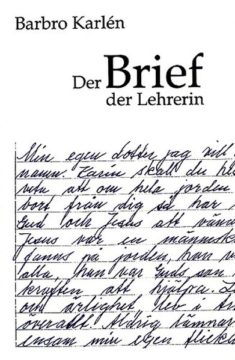 Barbro Karlén
Der Brief
der Lehrerin
Min egen dotter jag vill
namn. Karin skall du he
veta att om hela jorden
bort från dig så har
Gud och Jesus att vänd
Jesus var en människa
fanns på jorden, han va
alla, han var Guds son
kraften att hjälpa.
och ärlighet, lev i
överallt! Aldrig lämnar
ensam min egen flicka